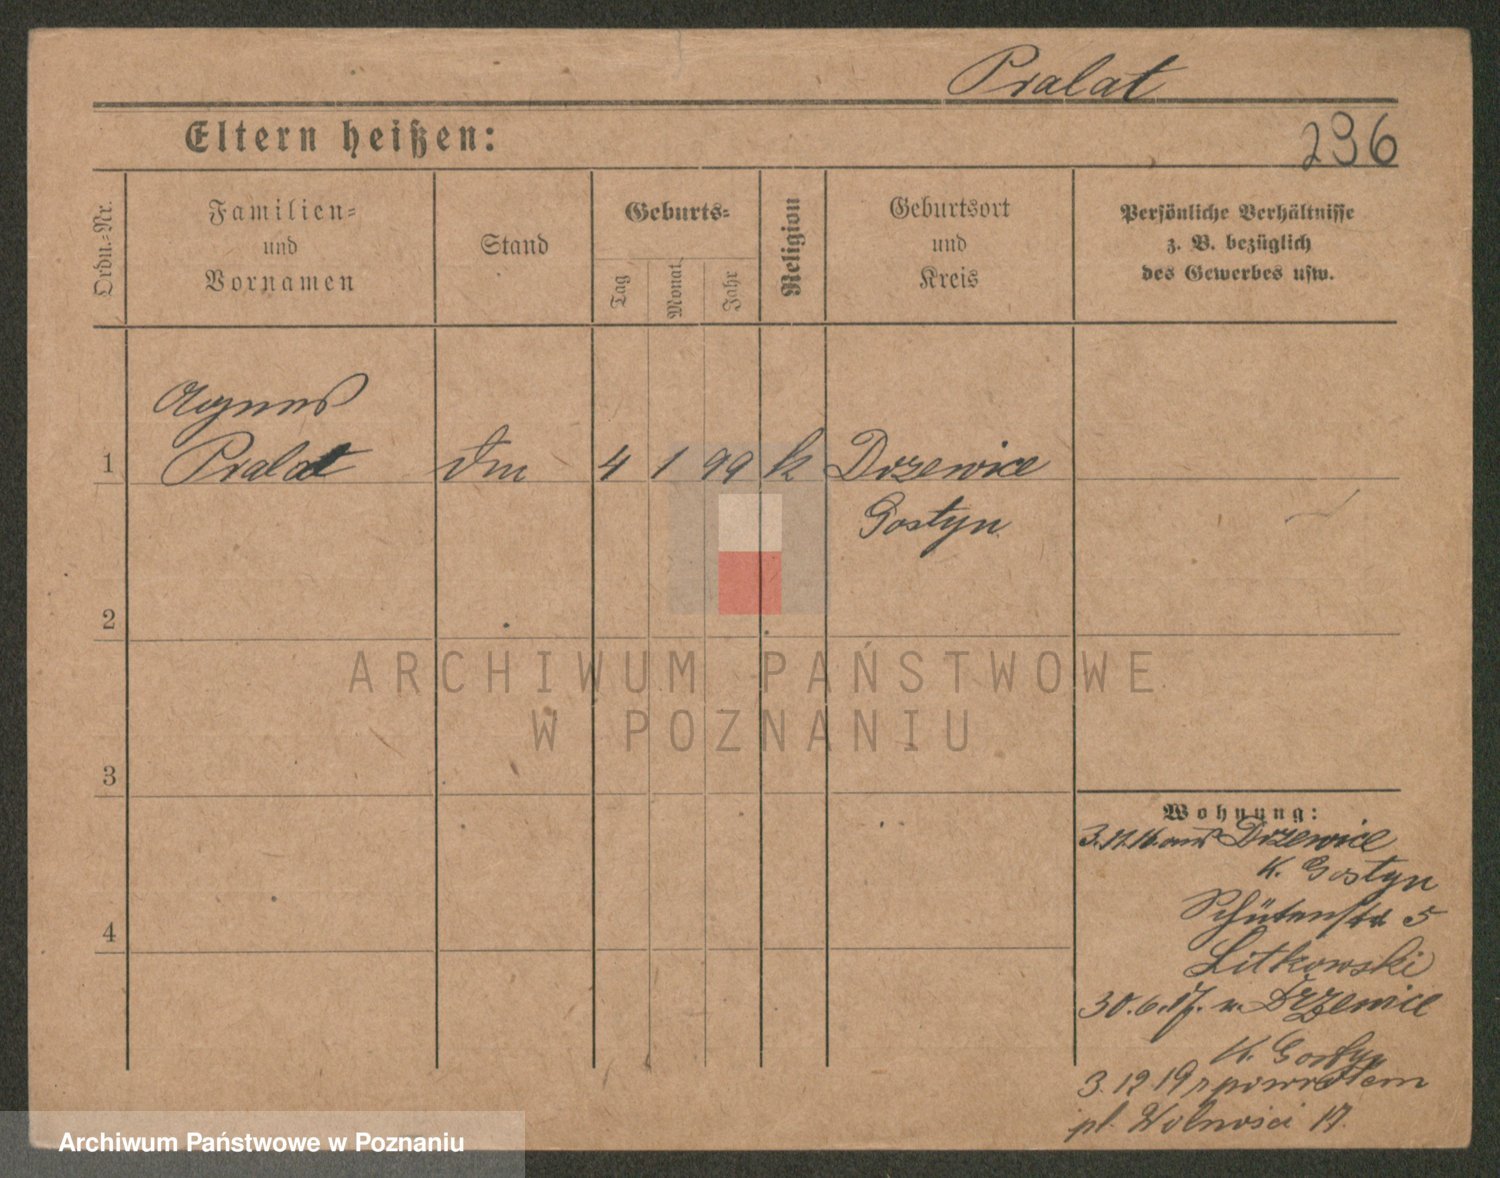 Pralat
Eltern heißen:
296
Ordn.-Nr.
Familien-
und
Vornamen
Stand
Geburts-
Tag
Monat
Jahr
Religion
Geburtsort
und
Kreis
Persönliche Verhältnisse
z. B. bezüglich
des Gewerbes usw.
Agnes
1 Pralat 4 1 99 k Drzewice
Gostyn
2
3
4
ARCHIWUM PAŃSTWOWE
W POZNANIU
Wohnung:
aus Drzewice
K. Gostyn
Schützenstr 5
Litkowski
30.6.17. n. Drzewice
K. Gostyn
3.12 19 z powrotem
pl. Wolności 17.
Archiwum Państwowe w Poznaniu